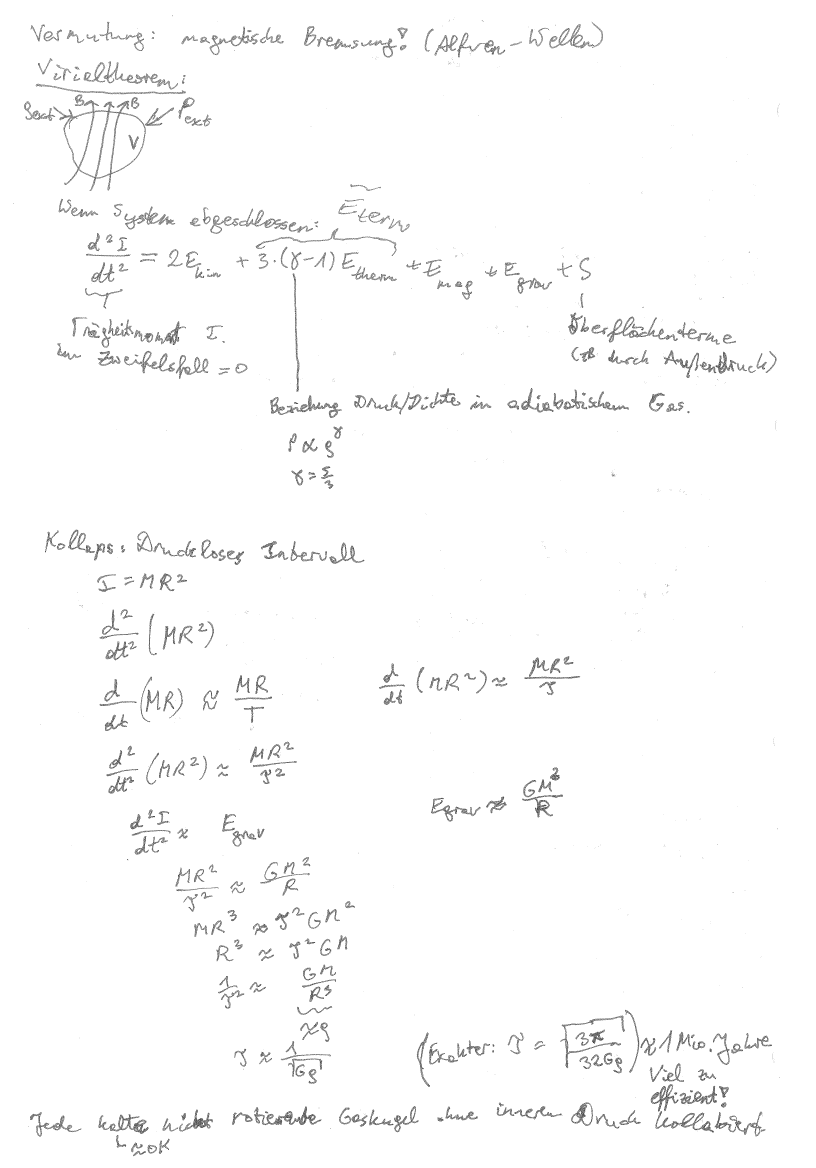 Vermutung: magnetische Bremsung! (Alfven-Wellen)
Virialtheorem:
B B
ρext Pext
V
Wenn System abgeschlossen: E term
d²I/dt² = 2E kin + 3·(γ-1) E therm + E mag + E grav + S
Trägheitsmoment I.
im Zweifelsfall = 0
Oberflächenterme
(zB durch Außendruck)
Beziehung Druck/Dichte in adiabatischem Gas.
P ∝ ρ^γ
γ = 5/3
Kollaps: Druckloses Intervall
I = MR²
d²/dt² (MR²)
d/dt (MR) ≈ MR/T
d/dt (MR²) ≈ MR²/τ
d²/dt² (MR²) ≈ MR²/τ²
d²I/dt² ≈ E grav
E grav ≈ GM²/R
MR²/τ² ≈ GM²/R
MR³ ≈ τ²GM²
R³ ≈ τ²GM
1/τ² ≈ GM/R³
≈ρ
τ ≈ 1/√Gρ
(Exakter: τ = √3π/32Gρ) ≈ 1 Mio. Jahre
Viel zu
effizient!
Jede kalte nicht rotierende Gaskugel ohne inneren Druck kollabiert
≈OK